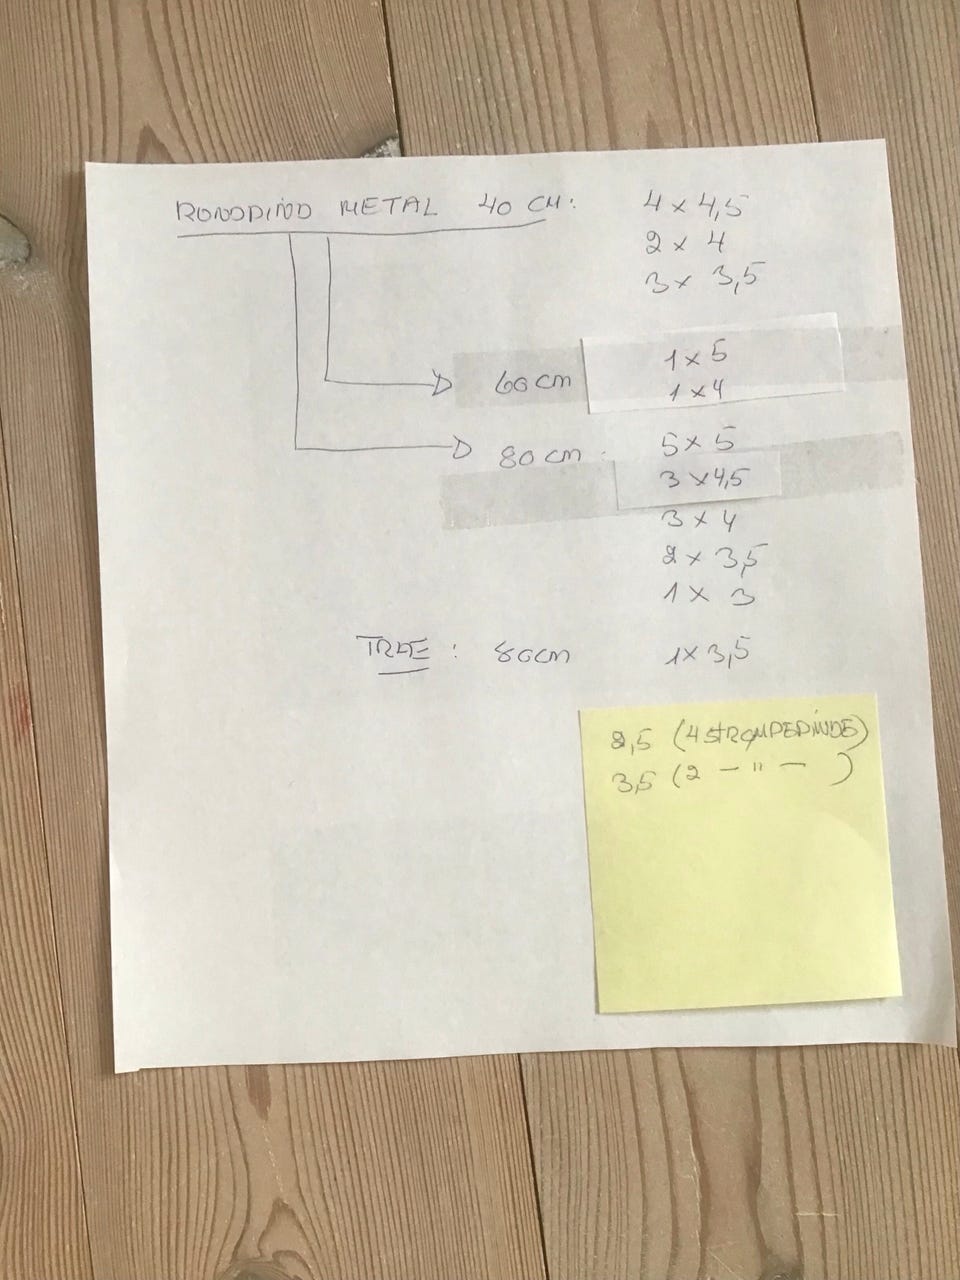 RUNDPIND METAL 40 CM:
4 x 4,5
2 x 4
3 x 3,5
60 cm
1 x 5
1 x 4
80 cm :
5 x 5
3 x 4,5
3 x 4
2 x 3,5
1 x 3
TRÆ : 80 cm 1 x 3,5
2,5 (4 STRØMPEPINDE)
3,5 (2 — " — )